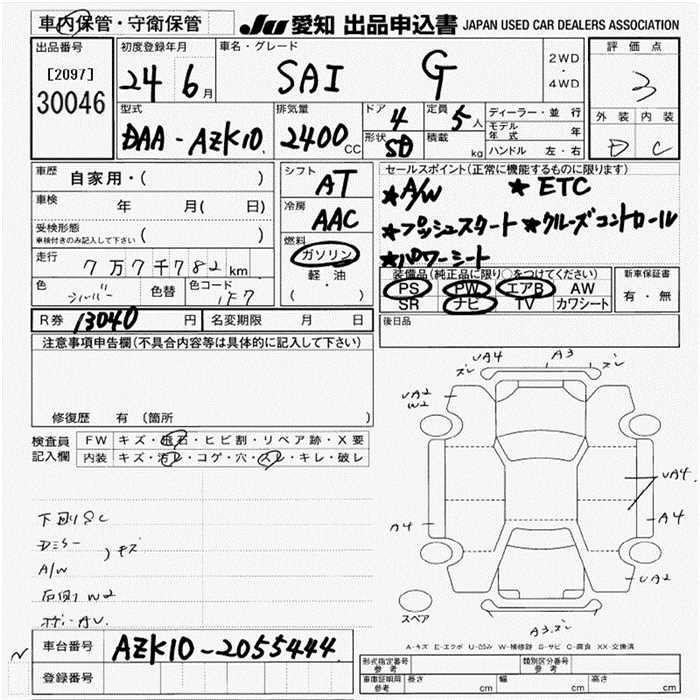 車内保管・守衛保管
JU 愛知 出品申込書 JAPAN USED CAR DEALERS ASSOCIATION
出品番号
[2097]
30046
初度登録年月
24 6月
車名・グレード
SAI G
2WD
・
4WD
評価点
3
外装 内装
D C
型式
DAA-AZK10
排気量
2400CC
ドア 4
形状 SD
定員 5人
積載 kg
ディーラー・並行
モデル年式 年
ハンドル 左・右
車歴 自家用・( )
車検 年 月( 日)
受検形態
車検付きのみ記入して下さい ( )
走行 7万7千782km
色 シルバー 色替 色コード 1F7
シフト AT
冷房 AAC
燃料
ガソリン
軽油
( )
セールスポイント(正常に機能するものに限ります)
★A/W ★ETC
★プッシュスタート ★クルーズコントロール
★パワーシート
装備品(純正品に限り○をつけてください)
PS PW エアB AW
SR ナビ TV カワシート
新車保証書
有・無
R券 13040円 名変期限 月 日
後日品
注意事項申告欄(不具合内容等は具体的に記入して下さい)
修復歴 有(箇所 )
検査員記入欄
FW キズ・飛石・ヒビ割・リペア跡・X要
内装 キズ・汚レ・コゲ・穴・スレ・キレ・破レ
A/W
キズ
W2
UA4 A3 ズレ
ズレ
UA2
W2
UA4
A4
A4
UA2
A3.ズレ
スペア
A-キズ E-エクボ U-凹み W-補修跡 S-サビ C-腐食 XX-交換済
車台番号 AZK10-2055444
登録番号
形式指定番号 参考
類別区分番号 参考
車庫証明用 参考 長さ cm 幅 cm 高さ cm